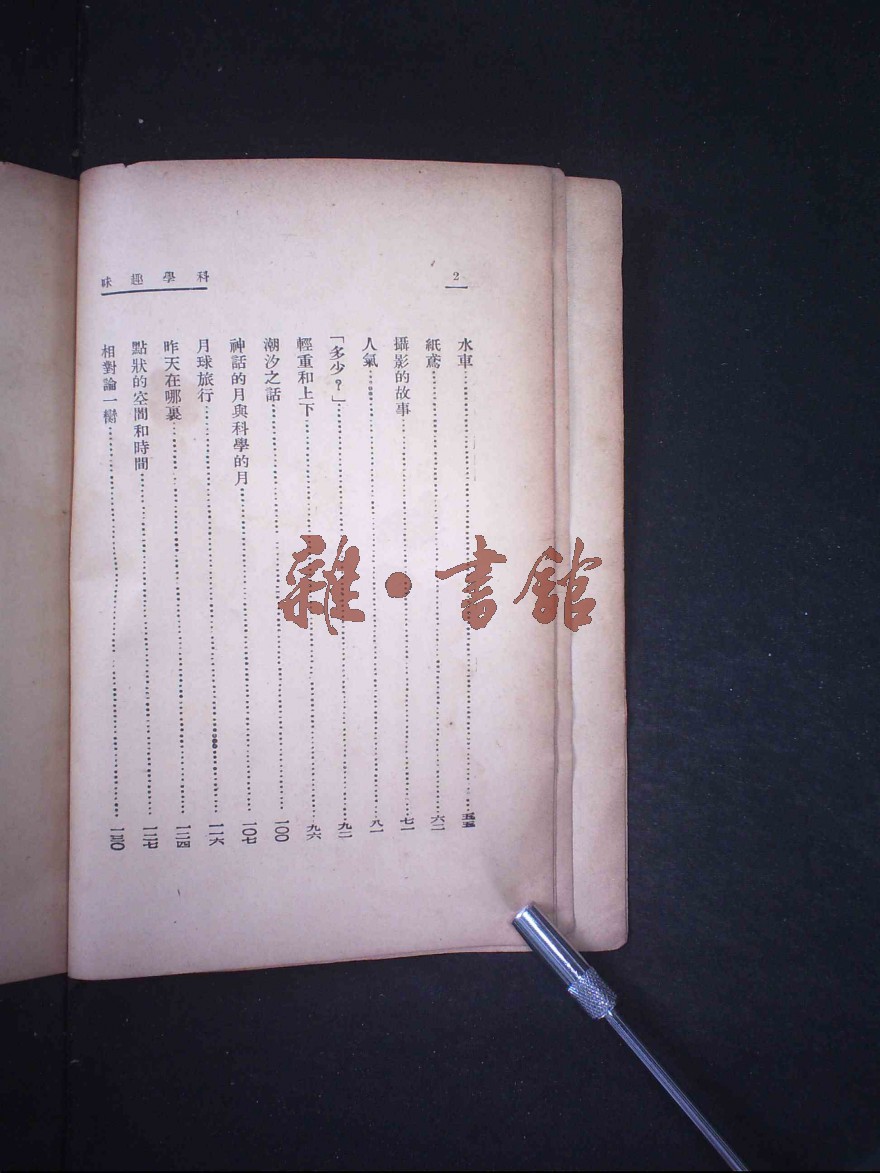 科學趣味
2
水車……五五
紙鳶……六二
攝影的故事……七一
人氣……八一
「多少？」……九二
輕重和上下……九六
潮汐之話……一〇〇
神話的月與科學的月……一〇七
月球旅行……一一六
昨天在哪裏……一二四
點狀的空間和時間……一二七
相對論一臠……一三〇
雜·書館